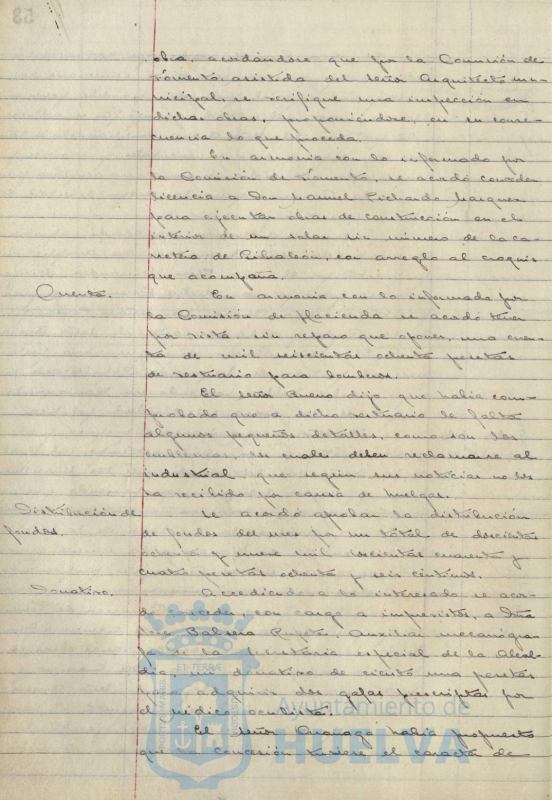 obra, acordándose que por la Comisión de
Fomento, asistida del señor Arquitecto mu-
nicipal, se verifique una inspección en
dichas obras, proponiéndose, en su conse-
cuencia lo que proceda.
En armonía con lo informado por
la Comisión de Fomento, se acordó conceder
licencia a Don Manuel Pichardo Marquez
para ejecutar obras de construcción en el
interior de un solar sin número de la ca-
rretera de Gibraleón, con arreglo al croquis
que acompaña.
Cuenta. En armonía con lo informado por
la Comisión de Hacienda se acordó tener
por vista, sin reparo que oponer, una cuen-
ta de mil seiscientas ochenta pesetas
de vestuario para bomberos.
El señor Bueno dijo que había com-
probado que a dicho vestuario le falta
algunos pequeños detalles, como son los
emblemas, los cuales deben reclamarse al
industrial, que según sus noticias no los
ha recibido por causa de huelgas.
Distribución de fondos. Se acordó aprobar la distribución
de fondos del mes por un total de doscientas
ochenta y nueve mil doscientas cuarenta y
cuatro pesetas ochenta y seis céntimos.
Donativo. Accediendo a lo interesado se acor-
dó conceder, con cargo a imprevistos, a Doña
Auxiliar mecanógra-
fa de la Secretaría especial de la Alcal-
día, un donativo de ciento una pesetas
para adquirir dos gafas prescriptas por
el médico oculista.
El señor había propuesto
que concesión tuviese el caracter de
Ayuntamiento de
HUELVA